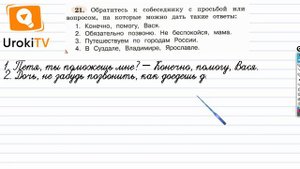 UrokiTV
21. Обратитесь к собеседнику с просьбой или
вопросом, на которые можно дать такие ответы:
1. Конечно, помогу, Вася.
2. Обязательно позвоню. Не беспокойся, мама.
3. Путешествуем по городам России.
4. В Суздале, Владимире, Ярославле.
1. Петя, ты поможешь мне? — Конечно, помогу, Вася.
2. Дочь, не забудь позвонить, как доедешь д